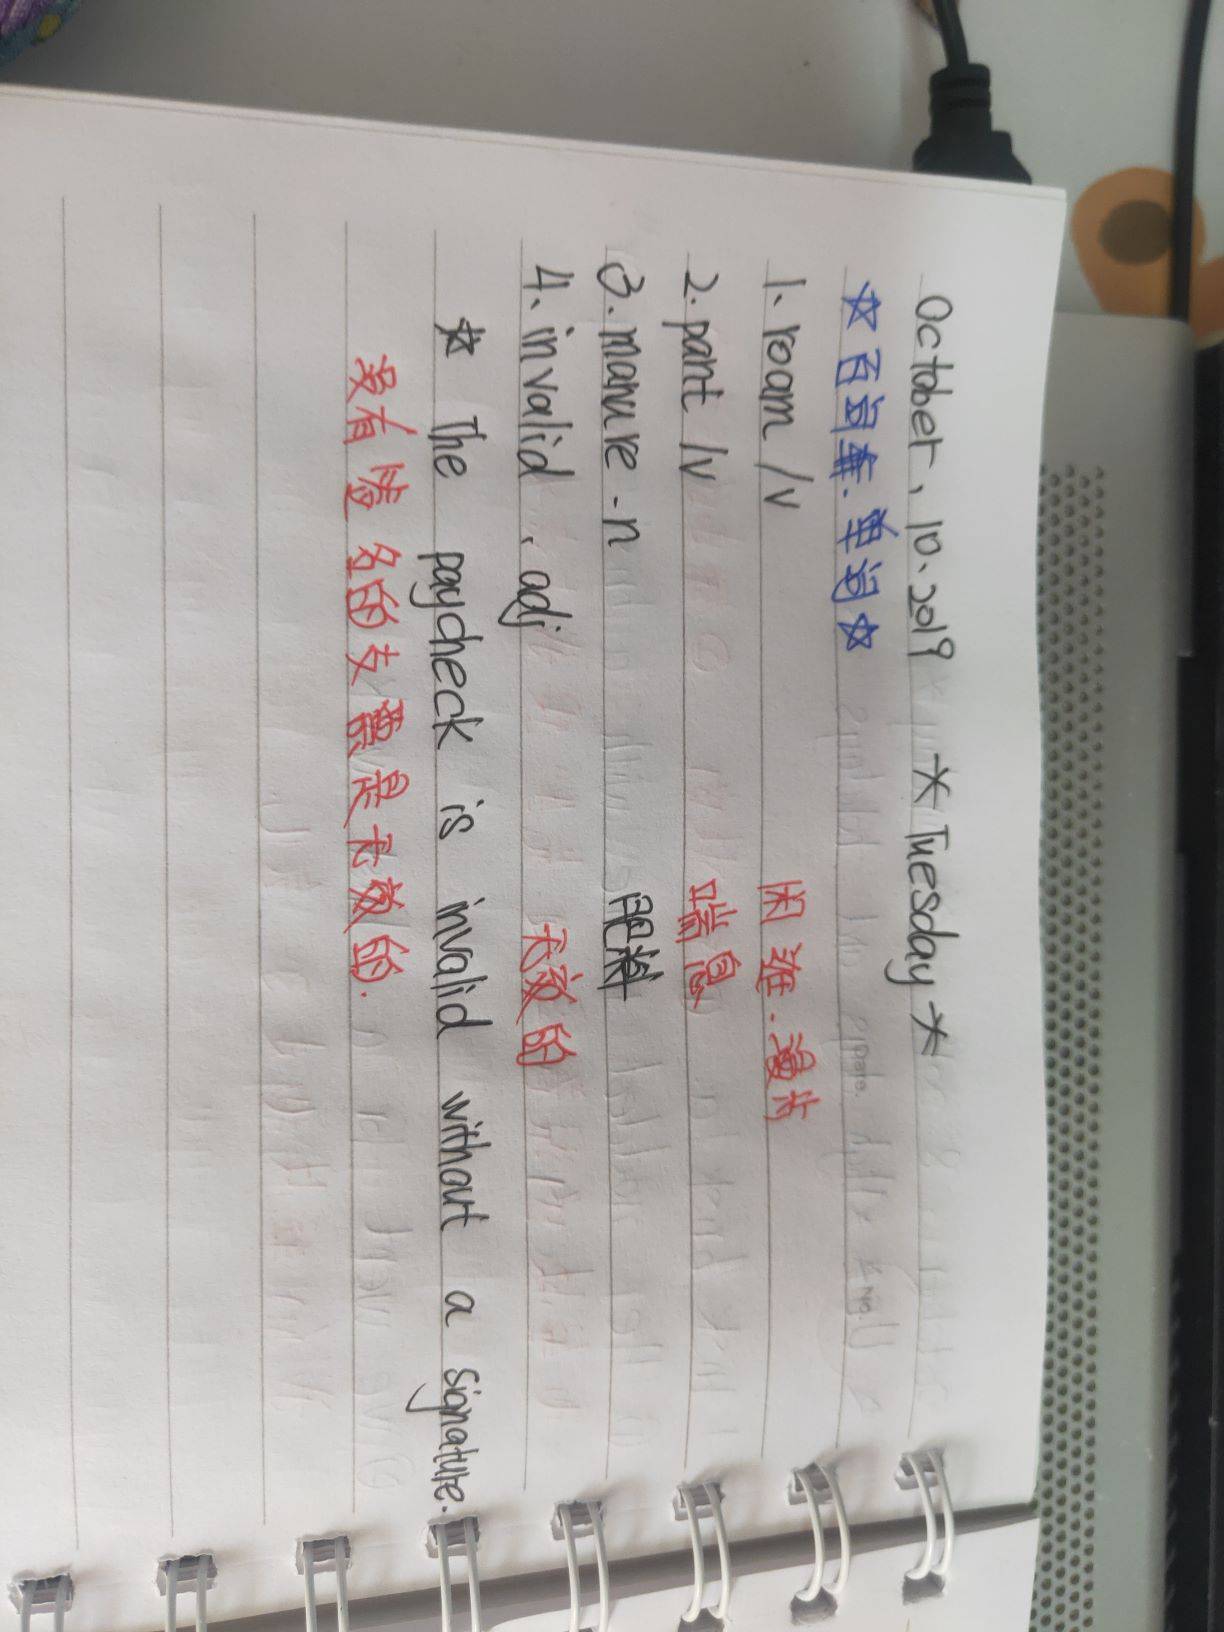 October, 10.2019 * Tuesday *
☆百词斩.单词☆
Date.
No.
1. roam /v 闲逛.漫步
2. pant /v 喘息
3. manure -n 肥料
4. invalid . adj 无效的
☆ The paycheck is invalid without a signature.
没有签名的支票是无效的.